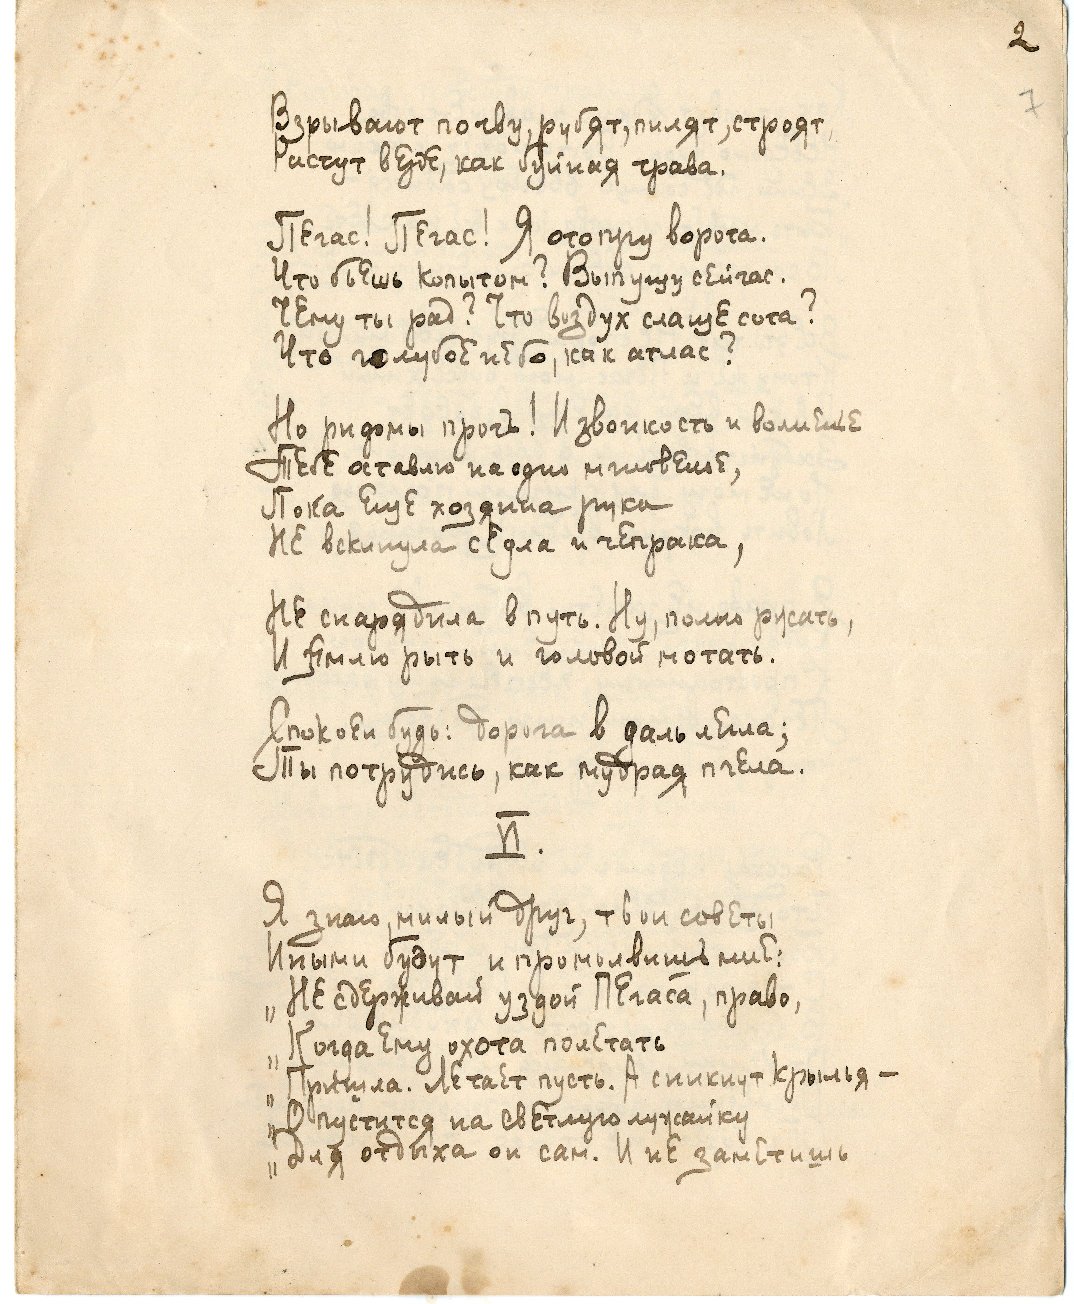 2
7
Взрывают почву, рубят, пилят, строят,
Растут везде, как буйная трава.
Пегас! Пегас! Я отопру ворота.
Что бьешь копытом? Выпущу сейчас.
Чему ты рад? Что воздух слаще сота?
Что голубое небо, как атлас?
Но рыдоmы прочь! И звонкость и волненье
Тебе оставлю на одно мгновенье,
Пока еще хозяина рука
Не вскинула седла и чепрака,
Не снарядила в путь. Ну, полно ржать,
И землю рыть и головой мотать.
Спокоен будь: дорога в даль легла;
Ты потрудись, как мудрая пчела.
VI.
Я знаю, милый друг, твои советы
Иными будут и промолвишь мне:
„Не сдерживай уздой Пегаса, право,
„Когда ему охота полетать
„Пришла. Летает пусть. А сникнут крылья –
„Опустится на светлую лужайку
„Для отдыха он сам. И не заметишь